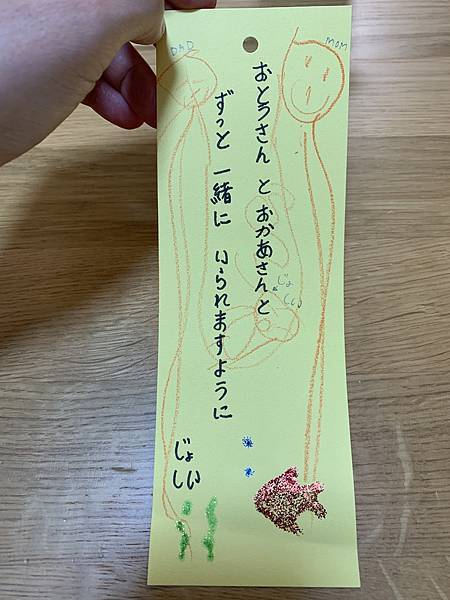 DAD
MOM
おとうさん と おかあさんと
ずっと 一緒に いられますように
じょ
しい
じょ
しい